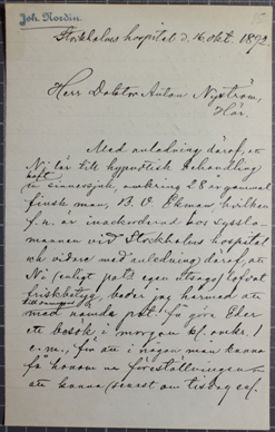 Joh. Nordin.
Stockholms hospital d. 16 okt. 1892
Herr Doktor Anton Nyström,
Här.
Med anledning däraf, att
Ni till hypnotisk behandling
haft
en sinnessjuk, omkring 28 år gammal
finsk man, B. V. Ekman hvilken
f. n. är inackorderad hos sysslo-
mannen vid Stockholms hospital
och vidare med anledning däraf, att
Ni enligt pats egen utsago lofvat
friskbetyg, beder jag härmed att
med nämda pat. få göra Eder
ett besök i morgon kl. 1
e. m., för att i någon mån kunna
få honom
att kunna